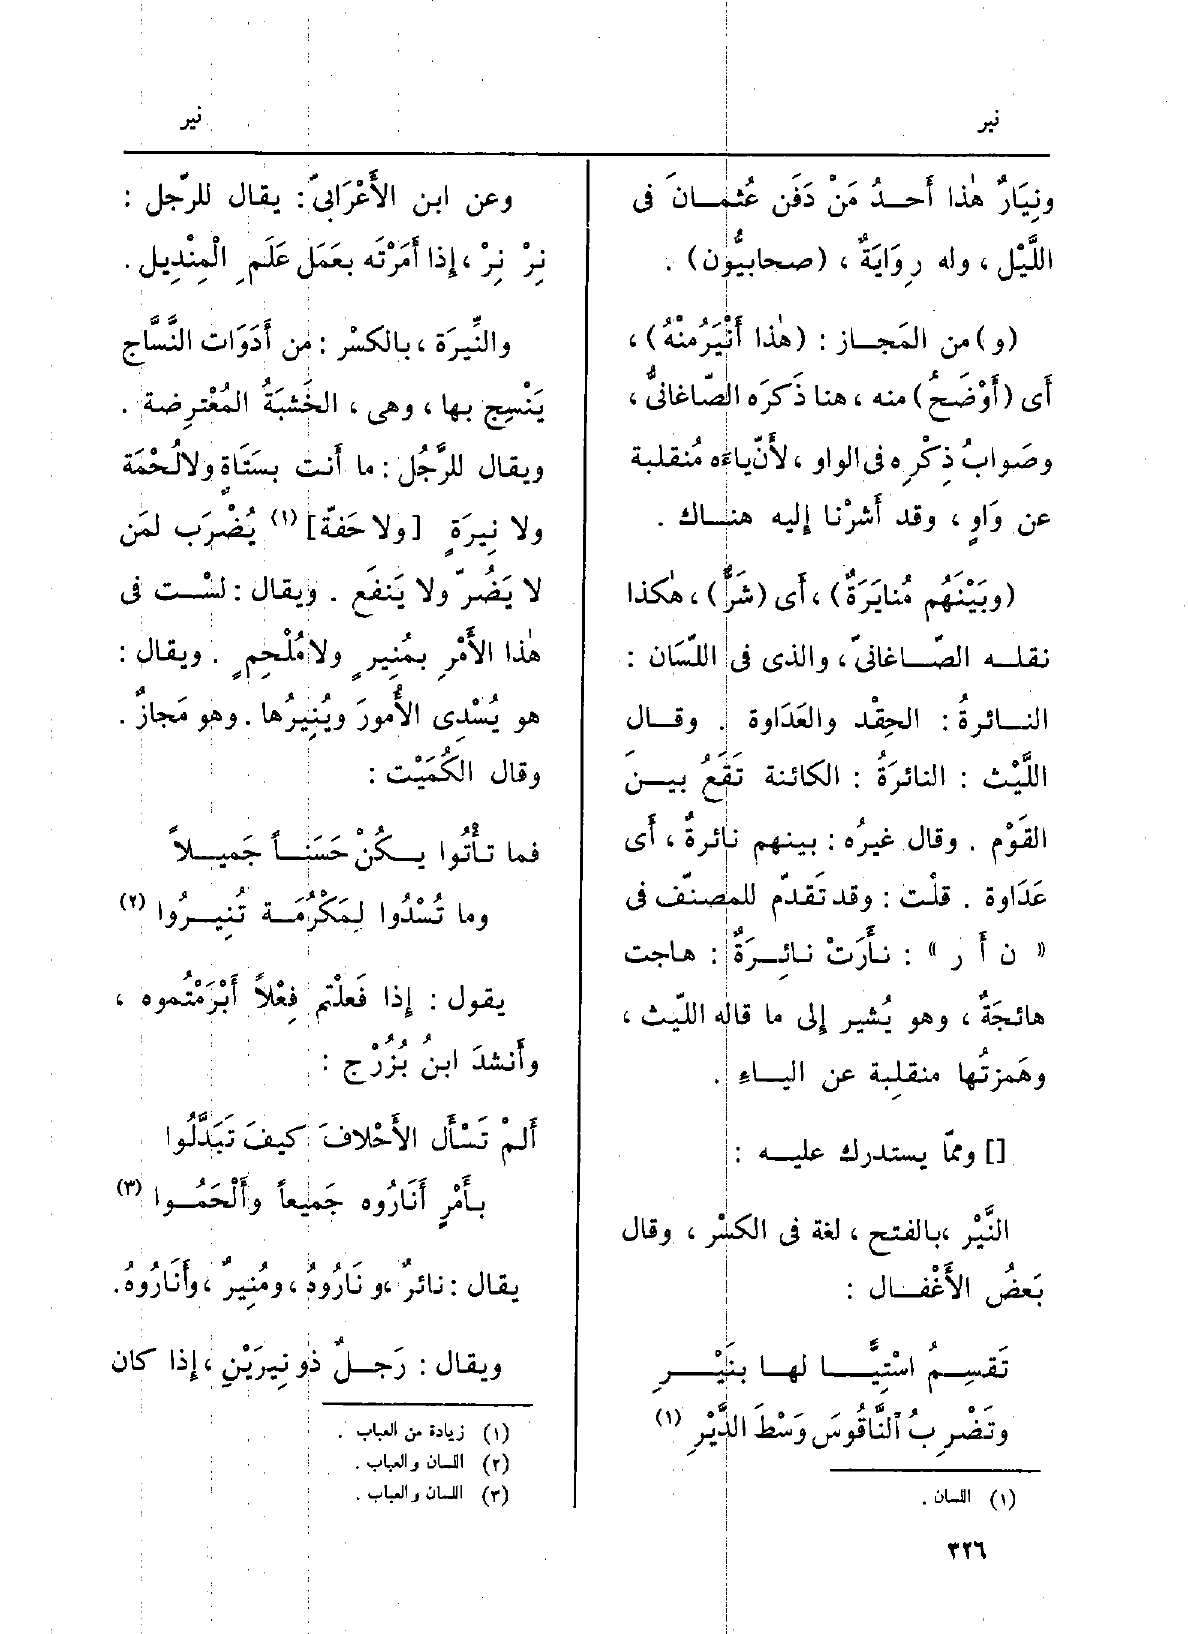 نير
نير
ونِيَارٌ هٰذا أَحــدُ مَنْ دَفَن عُثمــانَ فى
اللَّيْل ، وله رِوَايَةٌ ، (صحابيُّون) .
(و) من المَجــاز : (هٰذا أَنْيَرُ منْهُ) ،
أَى (أَوْضَحُ) منه ، هنا ذَكَرَه الصّاغانىُّ ،
وصَوابُ ذِكْرِه فى الواو ، لأَنّ ياءَه مُنقلبة
عن وَاوٍ ، وقد أَشَرْنا إليه هنــاك .
(وبَيْنَهُم مُنايَرَةٌ) ، أَى (شَرٌّ) ، هٰكذا
نقلــه الصّــاغانىّ ، والذى فى اللّسَان :
النــائرةُ : الحِقْد والعَدَاوة . وقــال
اللَّيْث : النائرَةُ : الكائنة تَقَعُ بيــنَ
القَوْم . وقال غيرُه : بينهم نائرةٌ ، أَى
عَدَاوة . قلْت : وقد تَقدّم للمصنّف فى
« ن أَ ر » : نأَرَتْ نائِــرَةٌ : هاجت
هائجَةٌ ، وهو يُشير إلى ما قاله اللّيث ،
وهَمزتُها منقلِبة عن اليــاءِ .
[] وممّا يستدرك عليــه :
النَّيْر ، بالفتح ، لغة فى الكسْر ، وقال
بَعضُ الأَغْفــال :
تَقسِــمُ اسْتِيًّــا لهــا بنَيْــرِ
وتَضْرِبُ ٱلنَّاقُوسَ وَسْطَ الدَّيْرِ (١)
(١) اللسان .
٣٢٦
وعن ابن الأَعْرَابىّ : يقال للرّجل :
نِرْ نِرْ ، إذا أَمَرْتَه بعَمَل عَلَمِ الْمِنْدِيل .
والنِّيرَة ، بالكسْر : من أَدَوَات النَّسَّاج
يَنْسِج بها ، وهى ، الخَشَبَةُ المُعْترِضة .
ويقال للرَّجُل : ما أَنت بسَتَاةٍ ولا لُحْمَة
ولا نِيرَةٍ [ولا حَفّة] (١) يُضْرَب لمَن
لا يَضُرّ ولا يَنفَع . ويقال : لسْــت فى
هٰذا الأَمْرِ بمُنِيرٍ ولا مُلْحِمٍ . ويقال :
هو يُسْدِى الأُمورَ ويُنِيرُها . وهو مَجازٌ .
وقال الكُمَيْت :
فما تأْتُوا يــكُنْ حَسَنــاً جَميــلاً
وما تُسْدُوا لِمَكْرُمَــة تُنِيــرُوا (٢)
يقول : إذا فَعلْتم فِعْلاً أَبْرَمْتُموه ،
وأَنشدَ ابنُ بُزُرْج :
أَلمْ تَسْأَل الأَحْلافَ كيفَ تَبَدَّلُوا
بأَمْرٍ أَنَارُوه جَميعاً وأَلْحَمُــوا (٣)
يقال : نائرٌ ، و نَارُوهُ ، ومُنِيرٌ ، وأَنَارُوهُ.
ويقال : رَجــلٌ ذو نِيرَيْنِ ، إذا كان
(١) زيادة من العباب .
(٢) اللسان والعباب .
(٣) اللسان والعباب .